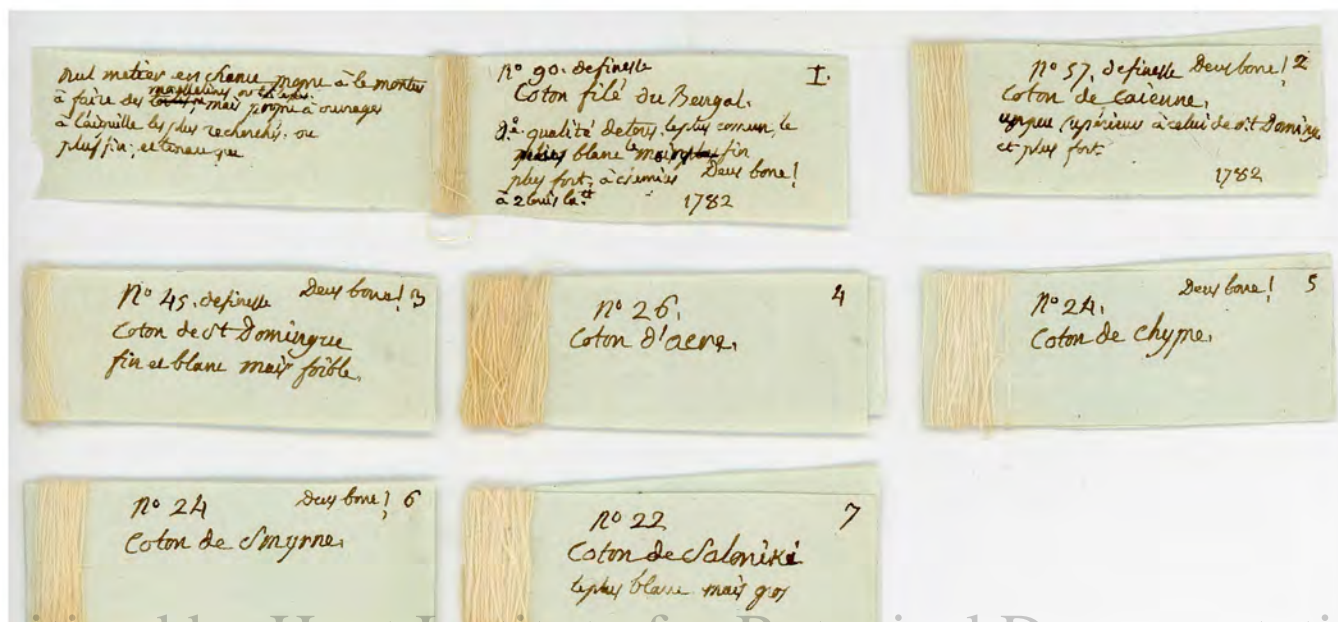 nul metier en chaine propre à le monter
à faire des mousselines ou toiles; mais propre à ouvrages
à l'aiguille les plus recherchés, ou
plus fin, et
I.
N° 90. definesse
Coton filé du Bengal.
qualité de tous, le plus comun, le
blanc le fin
plus fort, Deux bone!
à 2 louis la 1782
N° 57, definesse Deux bone! 2
Coton de Caienne,
unpeu supérieur à celui de st Domingue
et plus fort.
1782
N° 45. definesse Deux bone! 3
Coton de st Domingue
fin et blanc mais foible.
N° 26. 4
Coton d'acre.
N° 24. Deux bone! 5
Coton de Chypre.
N° 24 Deux bone! 6
Coton de Smyrne.
N° 22 7
Coton de Saloniki
le plus blanc mais gros